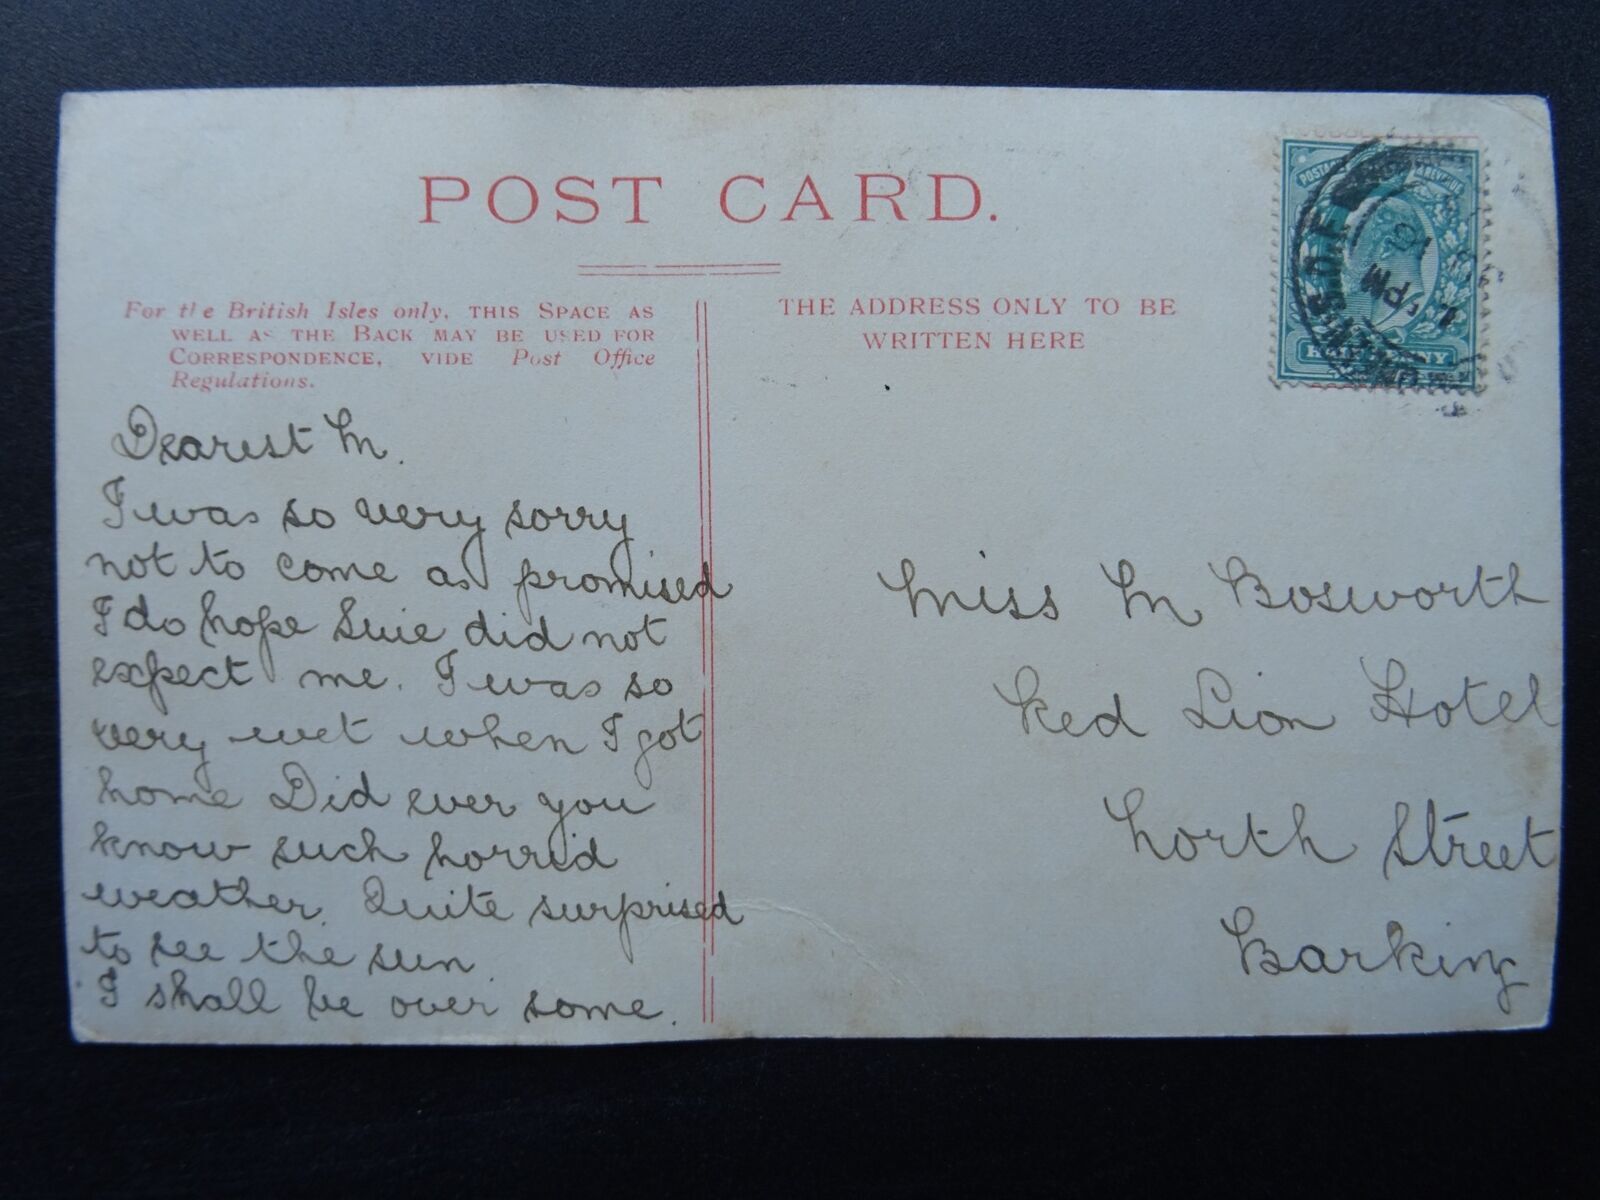 POST CARD.
For the British Isles only, THIS SPACE AS
WELL AS THE BACK MAY BE USED FOR
CORRESPONDENCE, VIDE Post Office
Regulations.
THE ADDRESS ONLY TO BE
WRITTEN HERE
POSTAGE & REVENUE
HALFPENNY
Dearest M.
I was so very sorry
not to come as promised
I do hope Suie did not
expect me. I was so
very wet when I got
home Did ever you
know such horrid
weather. Quite surprised
to see the sun.
I shall be over some.
Miss M Bosworth
Red Lion Hotel
North Street
Barking